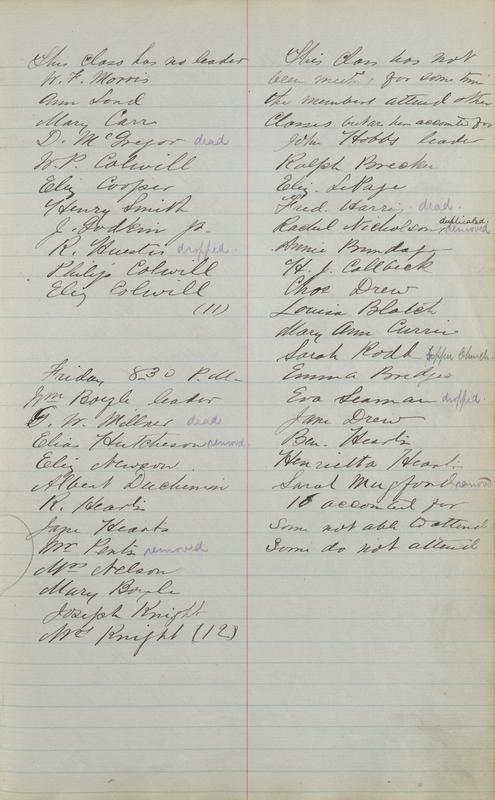 This Class has no leader
W. F. Morris
Ann Lord
Mary Carr
D. McGregor dead
W. P. Colwill
Eliz Cooper
Henry Smith
J. Godkin Jr.
R. Huestis dropped.
Philip Colwill
Eliz Colwill
(11)
Friday 8-30 P.M.
Wm Boyle leader
G. W. Millner dead
Elias Hutcheson removed.
Eliz Newson
Albert Duchemin
R. Hearts
Jane Hearts
Mr removed
Mrs Nelson
Mary Boyle
Joseph Knight
Mrs Knight (12)
This Class has not
been meeting for some time
the members attend other
Classes but are here accounted for
John Hobbs leader
Ralph Brecken
Eliz. LePage
Fred. Harris dead.
duplicated
Rachel Nicholson removed
Annie Bundage
H. J. Callbeck
Chas Drew
Louisa Blatch
Mary Ann Currie
Sarah Rodd upper Church.
Emma Bridges
Eva Seaman dropped.
Jane Drew
Ben. Hearts
Henrietta Hearts
Sarah Mugford removed
16 accounted for
Some not able to attend
Some do not attend